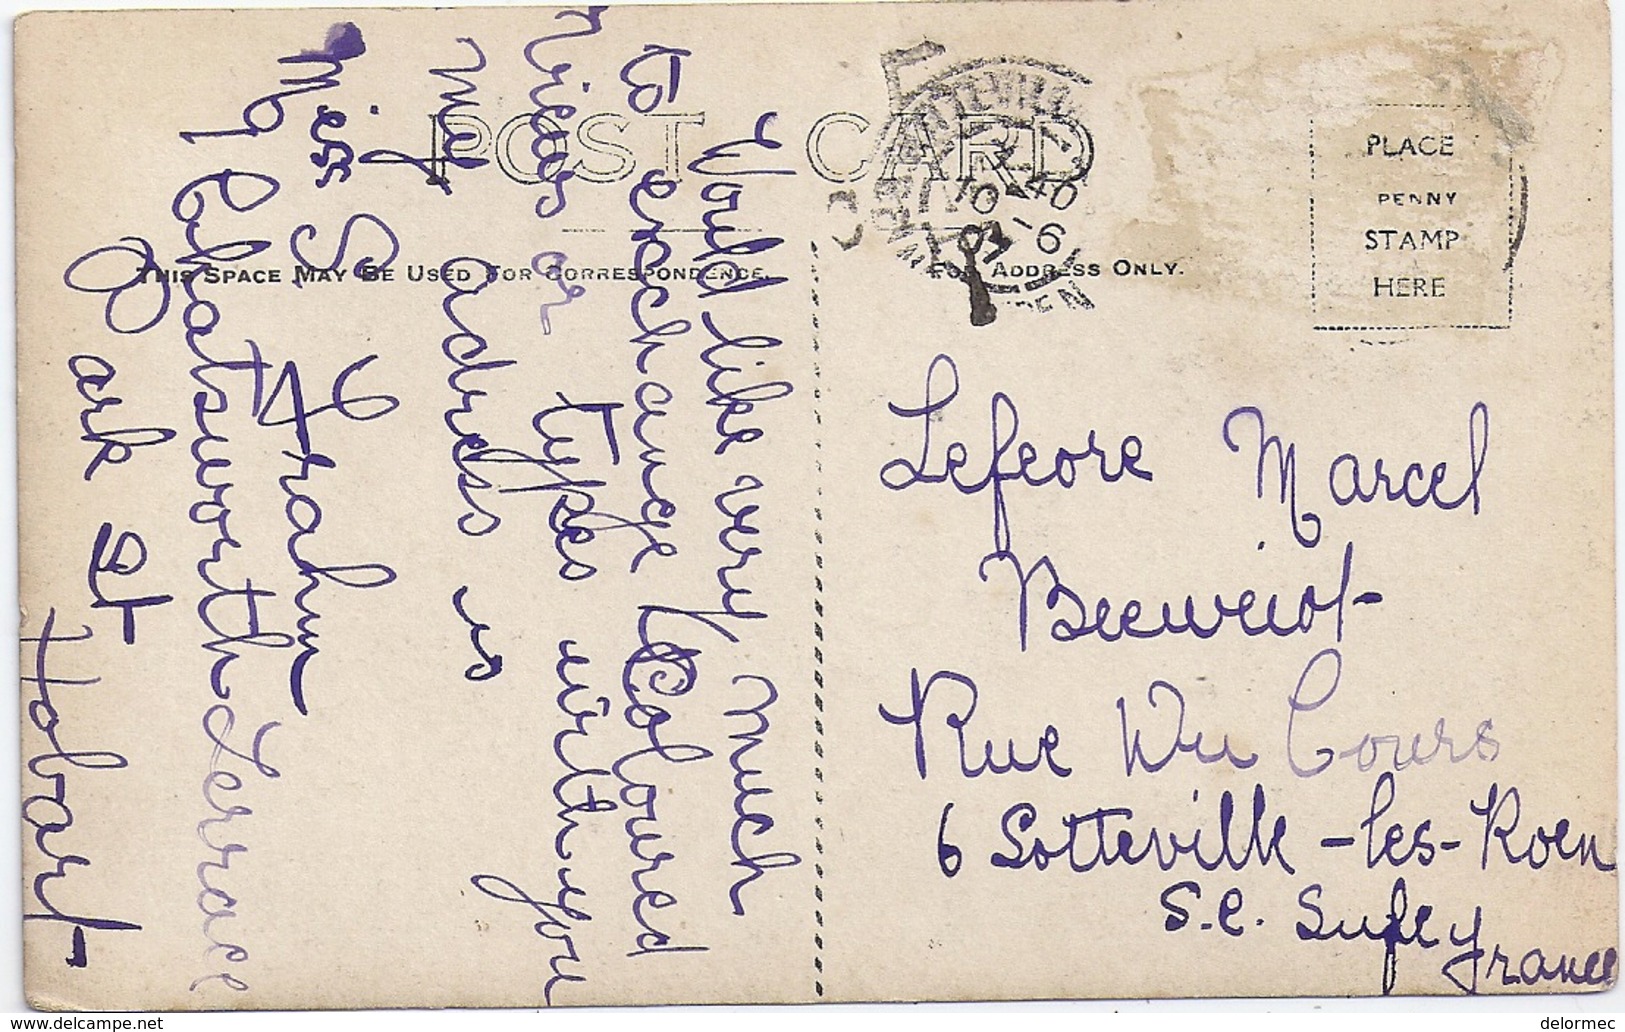 POST CARD
THIS SPACE MAY BE USED FOR CORRESPONDENCE.
FOR ADDRESS ONLY.
PLACE
PENNY
STAMP
HERE
Would like very much
to exchange Coloured
views or types with you
My adress is
Miss S Grahm
Chatsworth Terrace
Park St
Hobart
10 40
6
Lefeore Marcel
Rue Du Cours
6 Sotteville-les-Roen
S.e. Sufe France
delormec